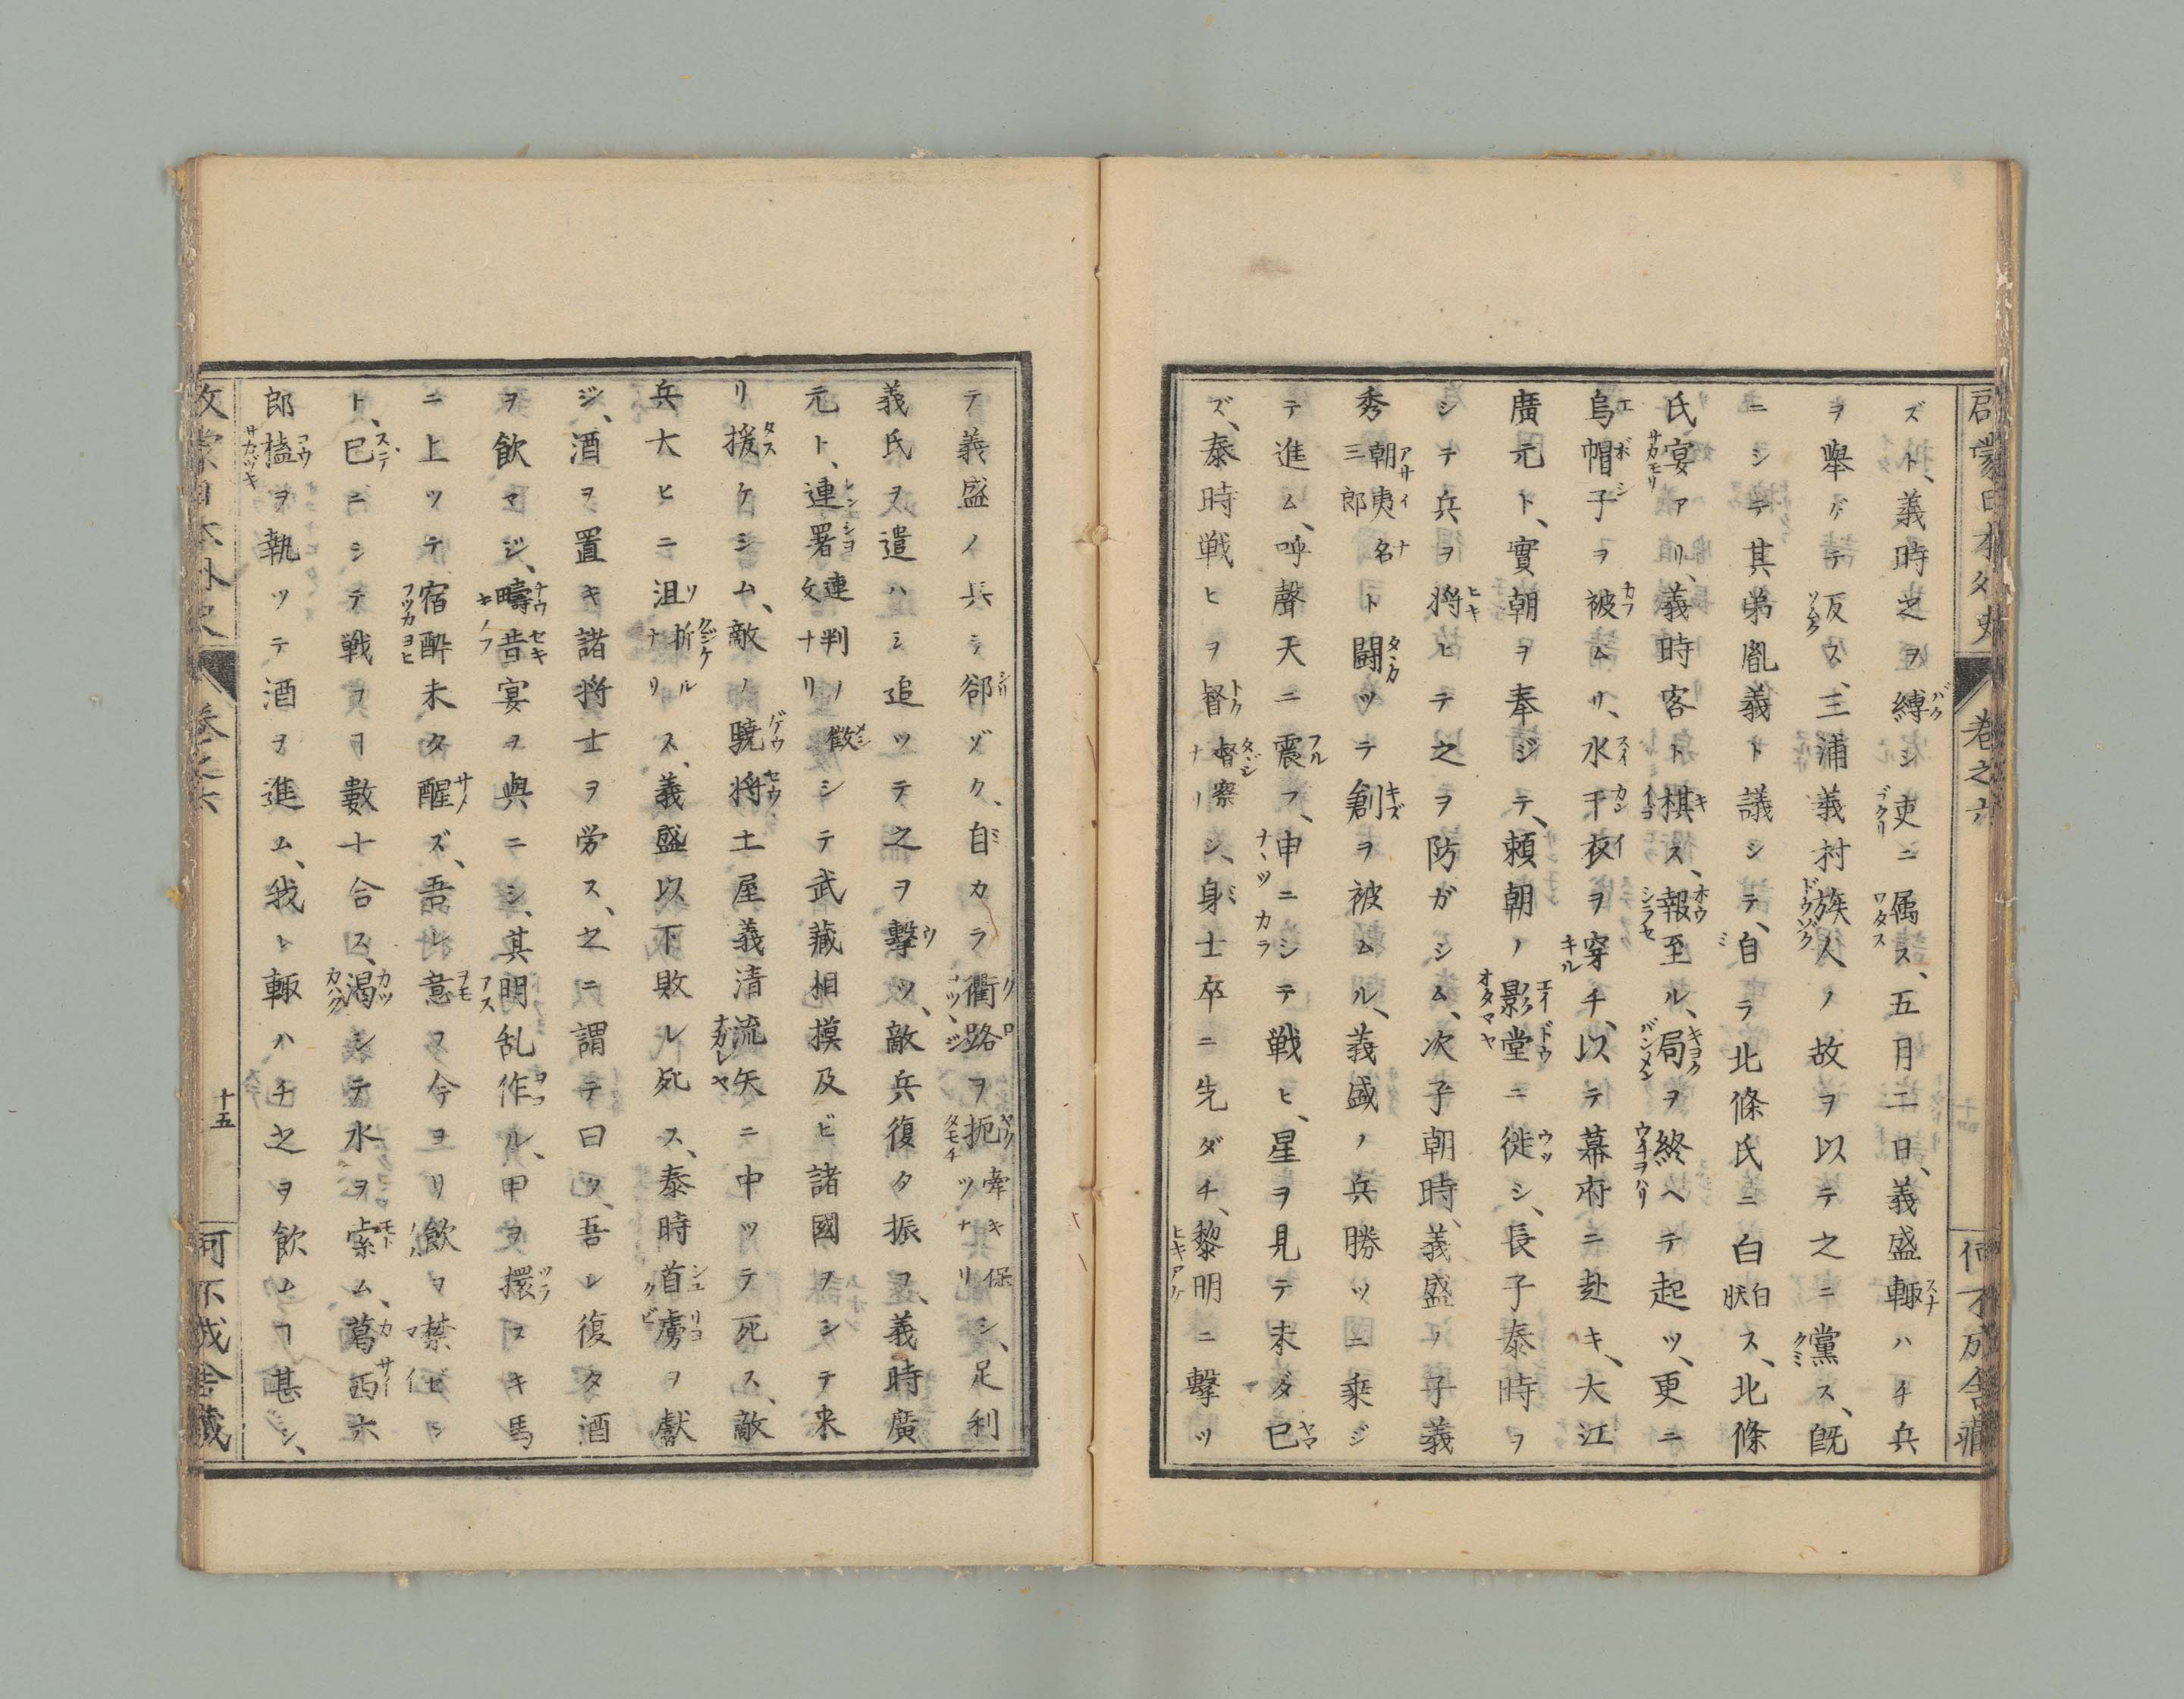 啓蒙日本外史 巻之六 何不成舎蔵
ズト、義時之ヲ縛シ吏ニ属ス、五月二日、義盛輙ハチ兵
ヲ舉ゲテ反ス、三浦義村族人ノ故ヲ以テ之ニ黨ス、旣
ニシテ其弟胤義ト議シテ、自ラ北條氏ニ白白狀ス、北條
氏宴アリ、義時客ト棋ス、報至ル、局ヲ終ヘテ起ツ、更ニ
烏帽子ヲ被ムリ、水干衣ヲ穿チ、以テ幕府ニ赴キ、大江
廣元ト、實朝ヲ奉ジテ、頼朝ノ影堂ニ徙シ、長子泰時ヲ
シテ兵ヲ將ヒテ之ヲ防ガシム、次子朝時、義盛ノ子義
秀朝夷名三郎ト闘ツテ創ヲ被ムル、義盛ノ兵勝ツニ乘ジ
テ進ム、呼聲天ニ震フ、申ニシテ戦ヒ、星ヲ見テ未ダ已
ズ、泰時戦ヒヲ督督察ナリシ、身士卒ニ先ダチ、黎明ニ擊ツ
テ義盛ノ兵ヲ郤ゾク、自カラ衢路ヲ扼牽キ保ツナリシ、足利
義氏ヲ遣ハシ追ツテ之ヲ擊ツ、敵兵復タ振ヲ、義時廣
元ト、連署連判ノ文ナリ徴シテ武藏相摸及ビ諸國ヲシテ来
リ援ケシム、敵ノ驍將土屋義清流矢ニ中ツテ死ス、敵
兵大ヒニ沮折ルナリス、義盛以下敗レ死ス、泰時首虜ヲ獻
ジ、酒ヲ置キ諸將士ヲ労ス、之ニ謂テ曰ツ、吾レ復タ酒
ヲ飲マジ、疇昔宴ヲ與ニシ、其明乱作ル、甲ヲ擐ヌキ馬
ニ上ツテ宿酔未タ醒ズ、吾レ意ヲ今ヨリ飲ヲ禁ビシ
ト、已ニシテ戦ヲヿ數十合ス、渇シテ水ヲ索ム、葛西六
郎榼ヲ執ツテ酒ヲ進ム、我レ輙ハチ之ヲ飲ムヿ甚シ、
啓蒙日本外史 巻之六 十五 何不成舎蔵